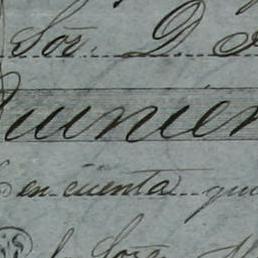 Sor. D.
Quinien
en cuenta qui
Sor.